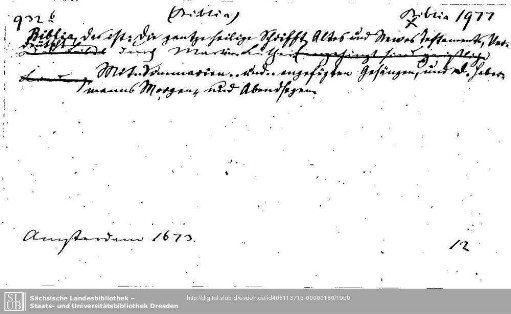 932 b (Biblia) Biblia 1977
Biblia, das ist: Die gantze heilige Schrifft Altes und Newes Testaments, Ver-
deutscht durch Martin Luther
Mit Summarien und angefügten Gesängen, und D. Haber-
manns Morgen- und Abendsegen.
Amsterdam 1673. 12
Sächsische Landesbibliothek –
Staats- und Universitätsbibliothek Dresden